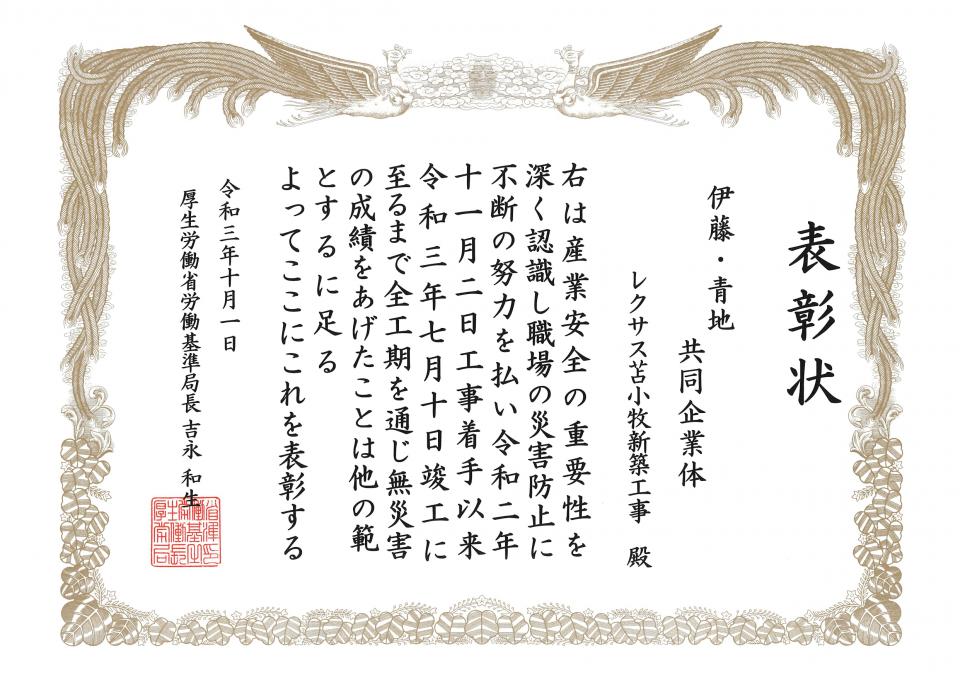 表彰状
伊藤・青地
共同企業体
レクサス苫小牧新築工事　殿
右は産業安全の重要性を
深く認識し職場の災害防止に
不断の努力を払い令和二年
十一月二日工事着手以来
令和三年七月十日竣工に
至るまで全工期を通じ無災害
の成績をあげたことは他の範
とするに足る
よってここにこれを表彰する
令和三年十月一日
厚生労働省労働基準局長 吉永 和生